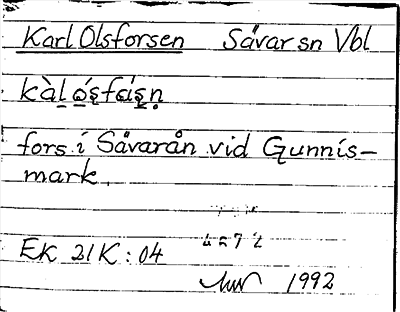 Karl Olsforsen Sävar sn Vbl
kàl ǫ́sfá́sn̥
fors i Sävarån vid Gunnis-
mark
EK 21K:04
1992